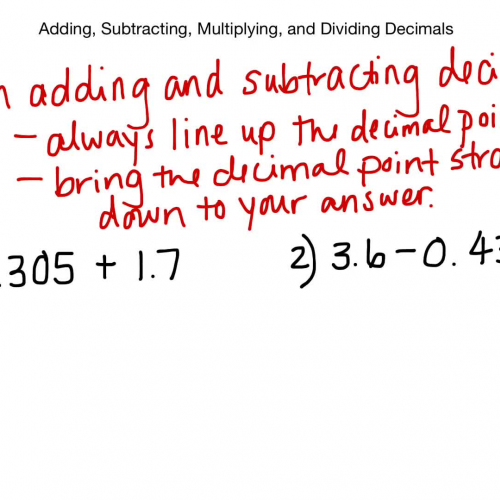 Adding, Subtracting, Multiplying, and Dividing Decimals
adding and subtracting deci
- always line up the decimal poi
- bring the decimal point stra
down to your answer.
.305 + 1.7 2) 3.6 - 0.43